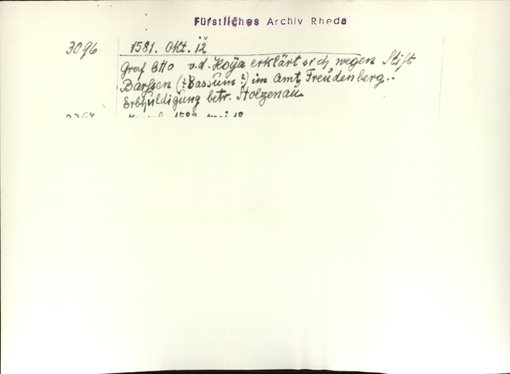 Fürstliches Archiv Rheda
3096 1581. Okt. 12
Graf Otto v.d. Hoya erklärt sich wegen Stift
Barßen (?Bassum?) im Amt Freudenberg.
Erbhuldigung betr. Stolzenau.